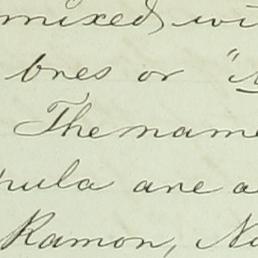 mixed wi
bres or "
The name
pula are a
Ramon, Na